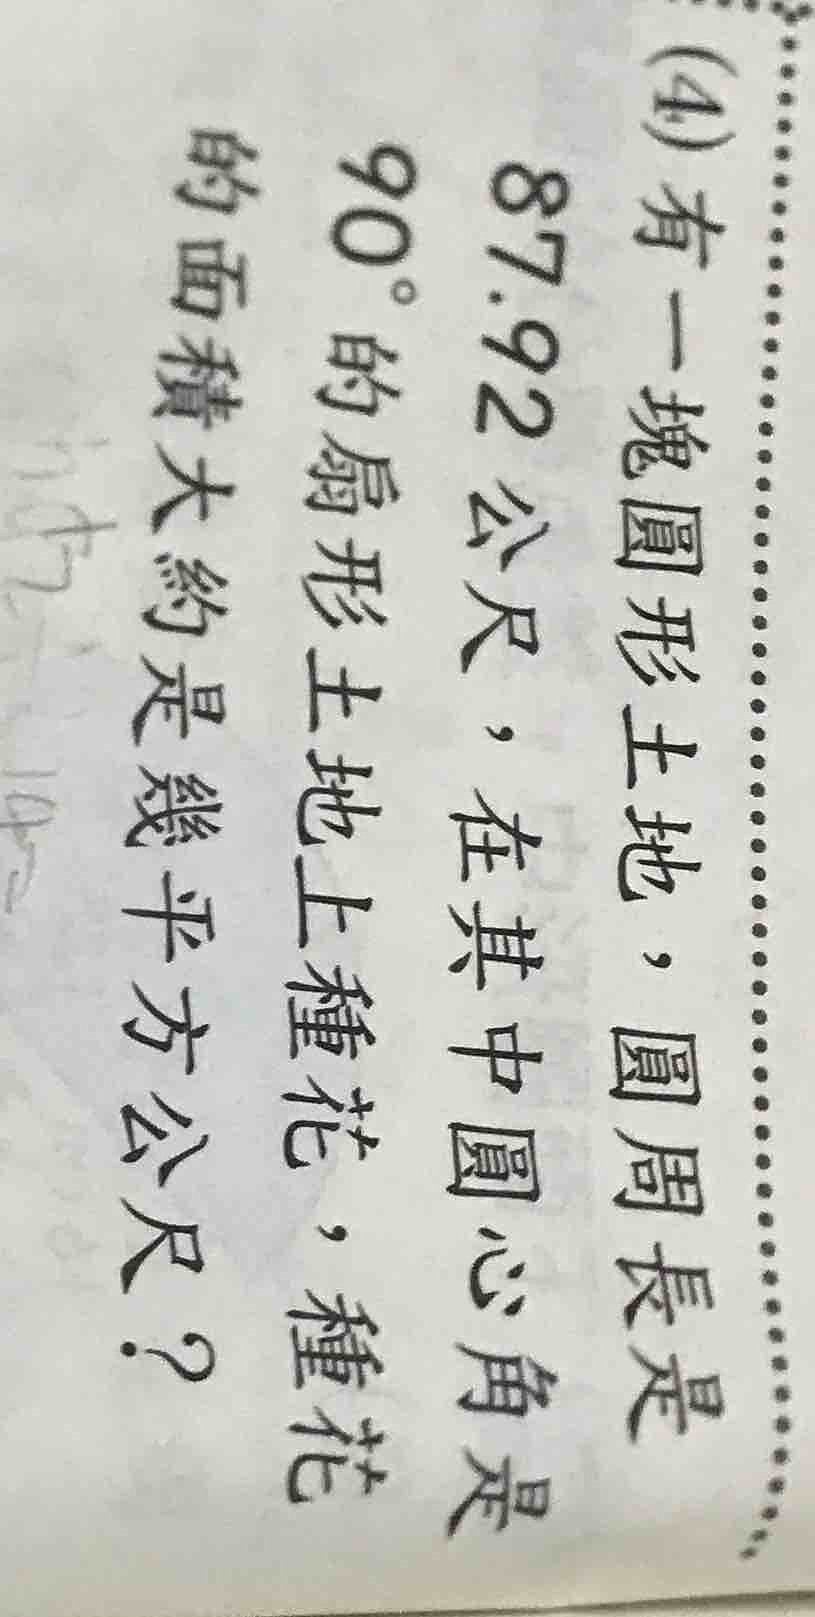 (4) 有一塊圓形土地，圓周長是
87.92 公尺，在其中圓心角是
90° 的扇形土地上種花，種花
的面積大約是幾平方公尺？